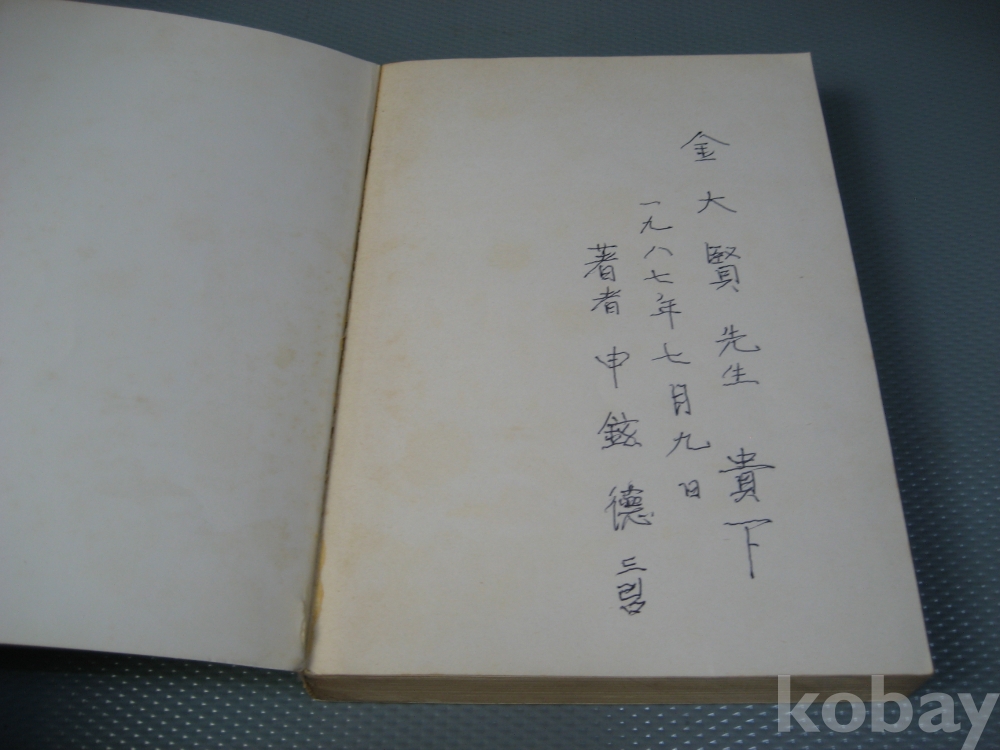 金大賢先生 貴下
一九八七年七月九日
著者 申鉉德 드림
kobay